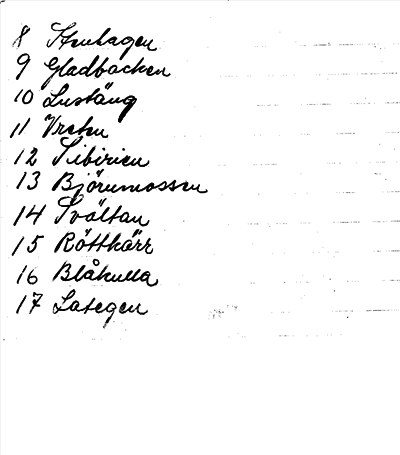 8 Stenhagen
9 Gladbacken
10 Luståug
11 Vreten
12 Sibirien
13 Björnmossen
14 Svältan
15 Röttkärr
16 Blåkulla
17 Lasegen